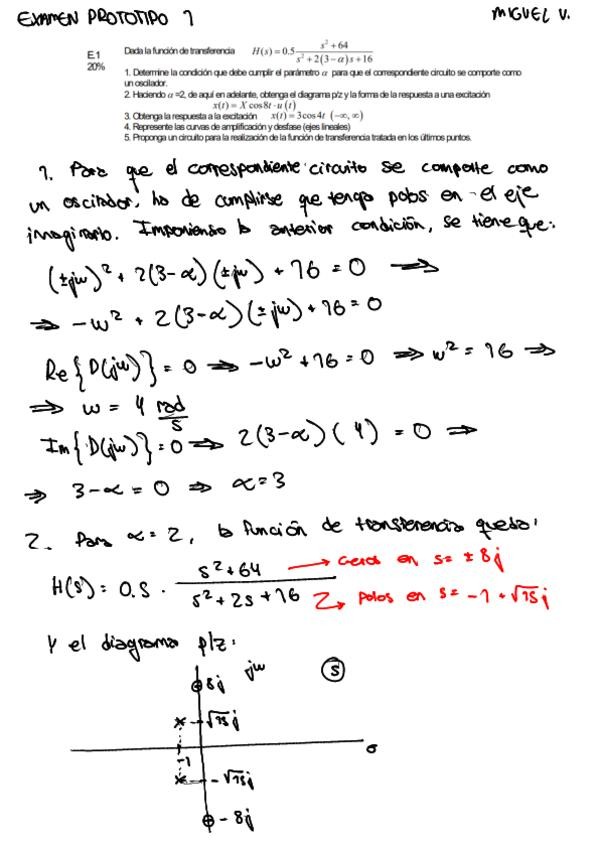 EXAMEN PROTOTIPO 1
MIGUEL V.
E.1 Dada la función de transferencia H(s) = 0.5 (s² + 64)/(s² + 2(3 − α)s + 16)
20%
1. Determine la condición que debe cumplir el parámetro α para que el correspondiente circuito se comporte como
un oscilador.
2. Haciendo α =2, de aquí en adelante, obtenga el diagrama p/z y la forma de la respuesta a una excitación
x(t) = X cos8t · u(t)
3. Obtenga la respuesta a la excitación x(t) = 3cos4t (−∞, ∞)
4. Represente las curvas de amplificación y desfase (ejes lineales)
5. Proponga un circuito para la realización de la función de transferencia tratada en los últimos puntos.
1. Para que el correspondiente circuito se comporte como
un oscilador, ha de cumplirse que tenga polos en el eje
imaginario. Imponiendo la anterior condición, se tiene que:
(±jω)² + 2(3-α)(±jω) + 16 = 0 ⇒
⇒ -ω² + 2(3-α)(±jω) + 16 = 0
Re{D(jω)} = 0 ⇒ -ω² + 16 = 0 ⇒ ω² = 16 ⇒
⇒ ω = 4 rad/s
Im{D(jω)} = 0 ⇒ 2(3-α)(4) = 0 ⇒
⇒ 3-α = 0 ⇒ α = 3
2. Para α = 2, la función de transferencia queda:
H(s) = 0.5 · (s² + 64)/(s² + 2s + 16)
→ Ceros en s = ±8j
→ Polos en s = -1 + √15 j
Y el diagrama p/z:
8j jω Ⓢ
√15 j
-1 σ
-√15 j
-8j